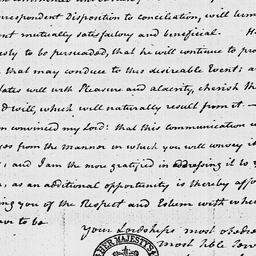 respondent Disposition to conciliation, will term
ent mutually satisfactory and beneficial. He
esly to be persuaded, that he will continue to pro
that may conduce to this desireable Event; a
tates will with Pleasure and alacrity, cherish th
d will, which will naturally result from it. —
m convinced my Lord: that this communication w
ges from the Mannor in which you will convey it
; and I am the more gratified in addressing it to y
, as an additional opportunity is thereby affor
ing you of the Respect and Esteem with which
ave to be
Your Lordships most obedien
most hble Serv
HER MAJESTY'S